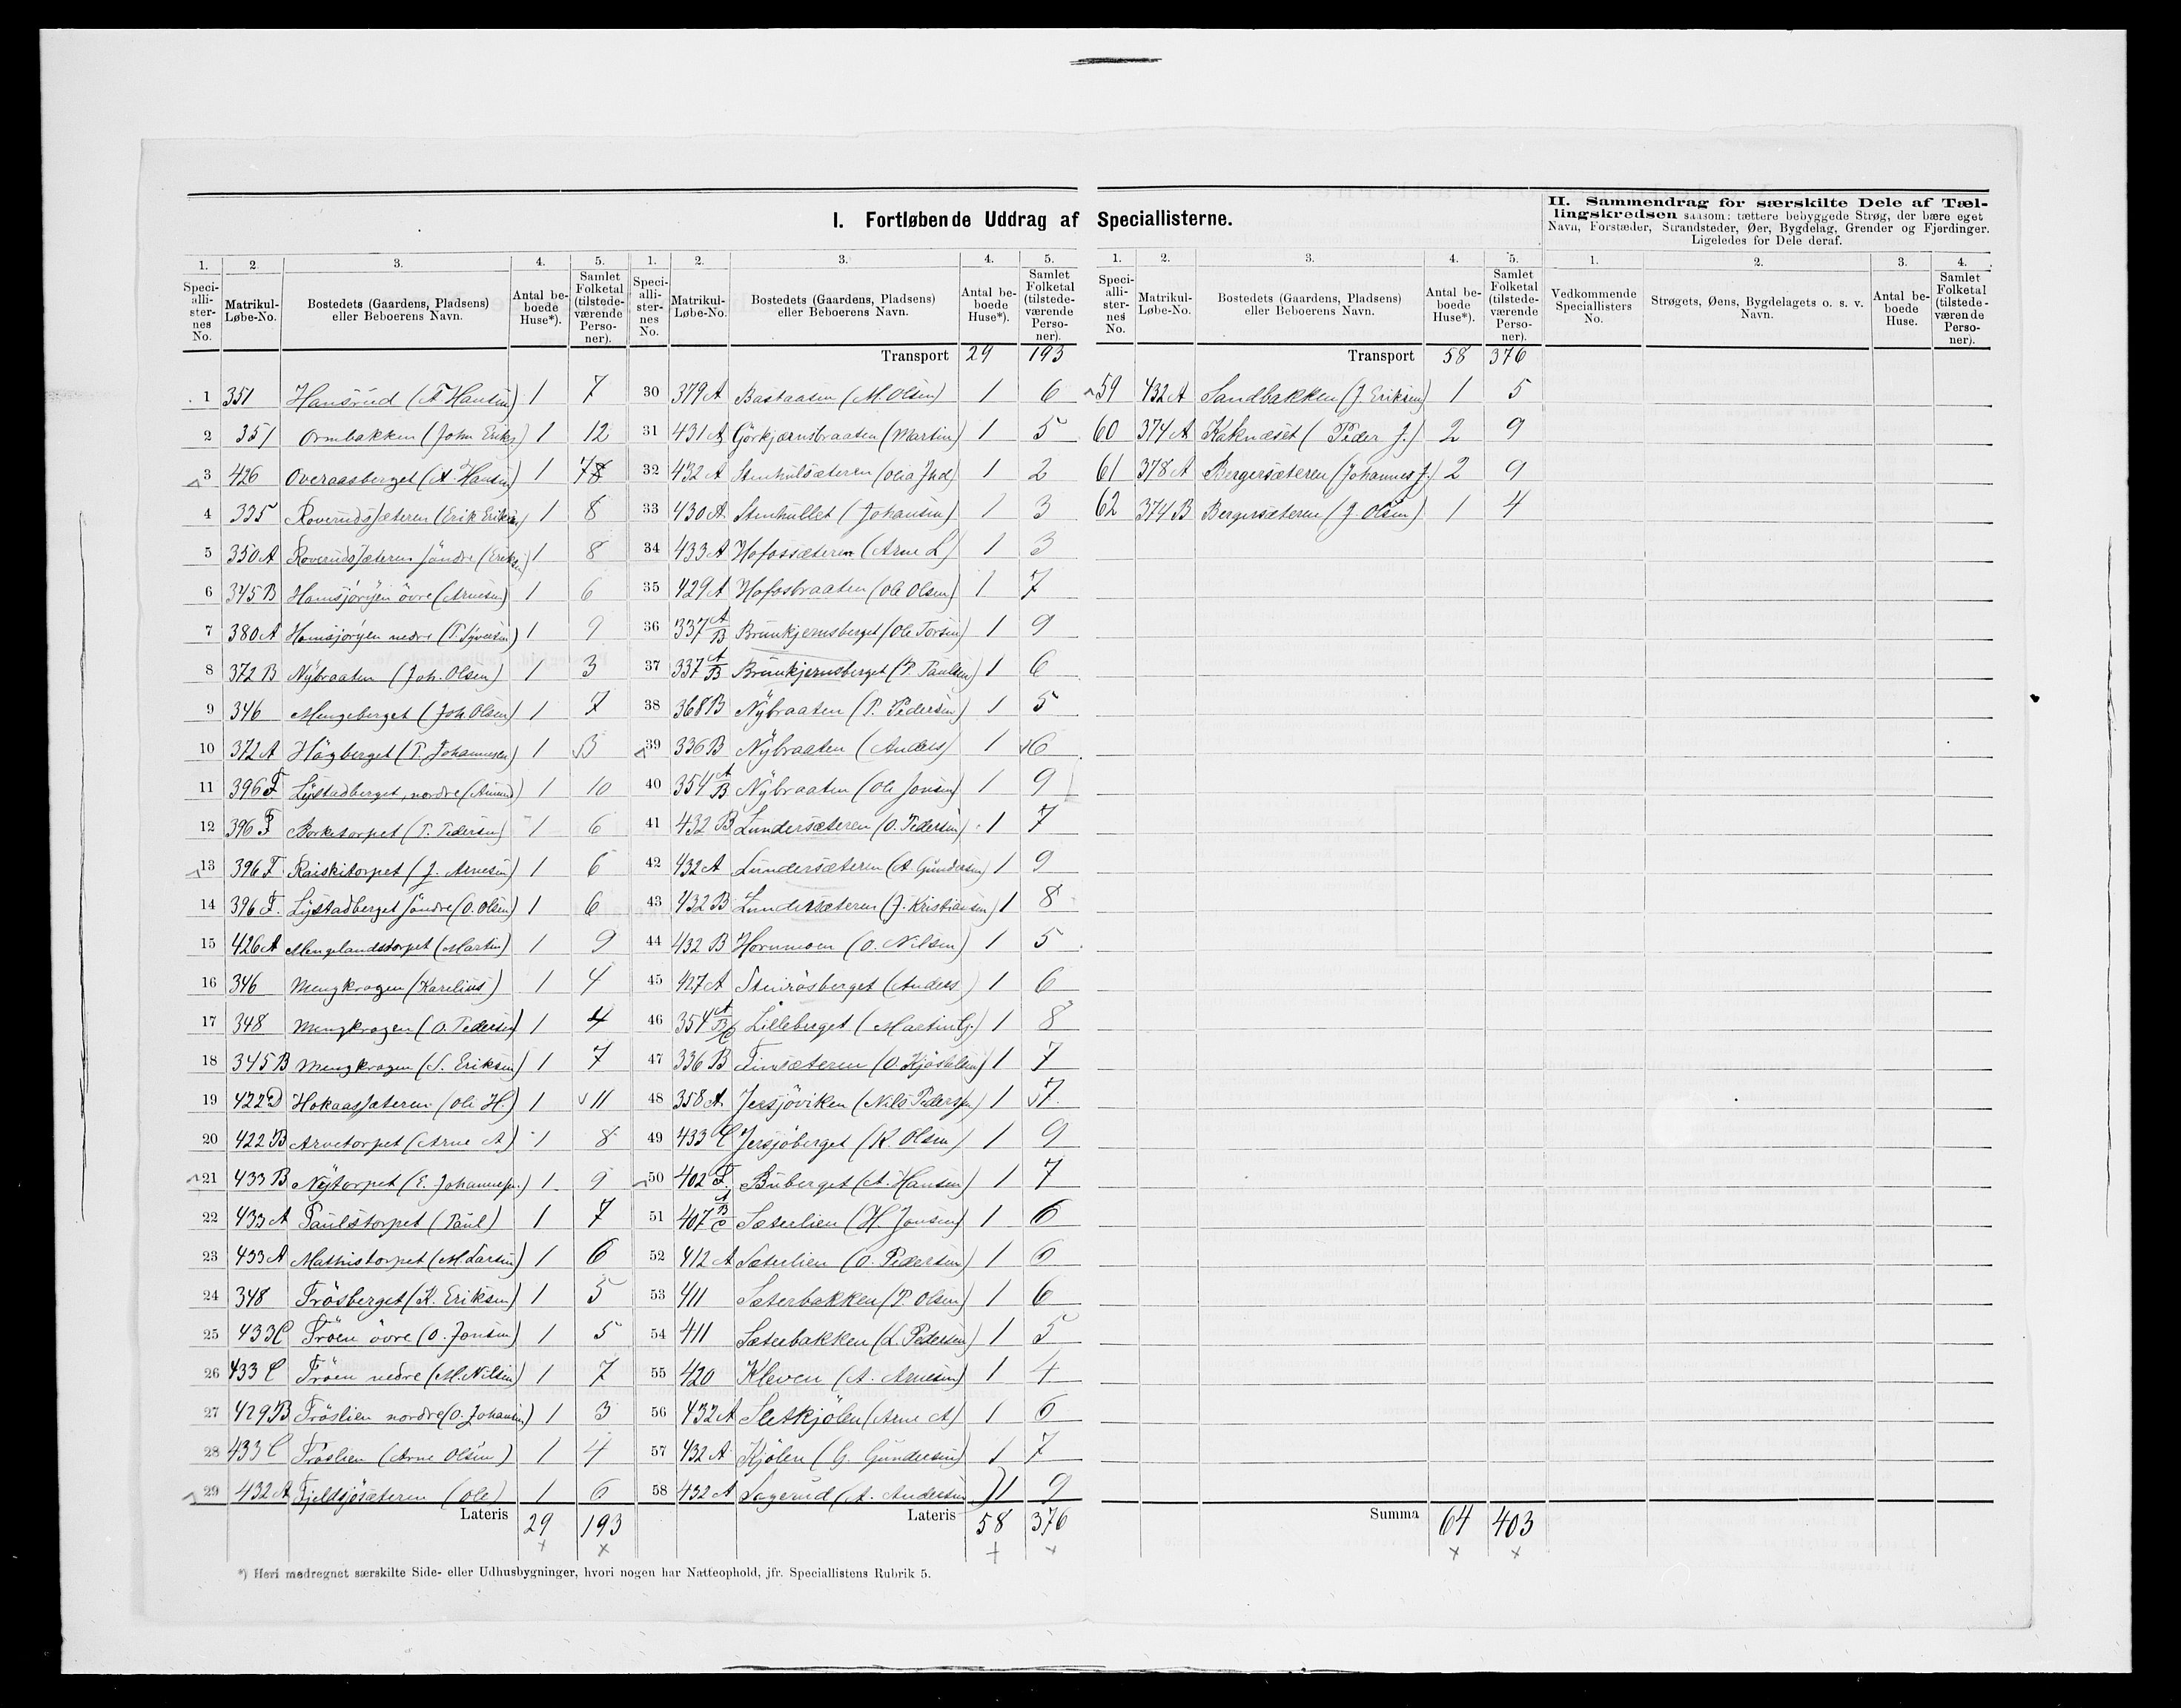 I. Fortløbende Uddrag af Speciallisterne.
II. Sammendrag for særskilte Dele af Tæl-
lingskredsen saasom: tættere bebyggede Strøg, der bære eget
Navn, Forstæder, Strandsteder, Øer, Bygdelag, Grender og Fjerdinger.
Ligeledes for Dele deraf.
1. 2. 3. 4. 5. 1. 2. 3. 4. 5. 1. 2. 3. 4. 5. 1. 2. 3. 4.
Speci-alli-ster-nes No. Matrikul-Løbe-No. Bostedets (Gaardens, Pladsens) eller Beboerens Navn. Antal be-boede Huse*). Samlet Folketal (tilstede-værende Perso-ner).
Speci-alli-ster-nes No. Matrikul-Løbe-No. Bostedets (Gaardens, Pladsens) eller Beboerens Navn. Antal be-boede Huse*). Samlet Folketal (tilstede-værende Perso-ner).
Speci-alli-ster-nes No. Matrikul-Løbe-No. Bostedets (Gaardens, Pladsens) eller Beboerens Navn. Antal be-boede Huse*). Samlet Folketal (tilstede-værende Perso-ner).
Vedkommende Speciallisters No. Strøgets, Øens, Bygdelagets o. s. v. Navn. Antal be-boede Huse. Samlet Folketal (tilstede-værende Perso-ner).
1 351 Hansrud (A Hansen) 1 7
2 351 Ormbakken (John Eriks.) 1 12
3 426 Overaasberget (A. Hansen) 1 78
4 335 Roverudsæteren (Erik Eriksen) 1 8
5 350 A Roverudsæteren söndre (Eriksen) 1 8
6 345 B Hamsjöröjen övre (Arnesen) 1 6
7 380 A Hamsjöröjen nedre (P. Syversen) 1 9
8 372 B Nybraaten (Joh. Olsen) 1 3
9 346 Mengeberget (Joh. Olsen) 1 7
10 372 A Högberget (P Johannesen) 1 3
11 396 F Lystadberget, nordre (Amund) 1 10
12 396 F Borketorpet (P. Pedersen) 1 6
13 396 F Raiskitorpet (J. Arnesen) 1 6
14 396 F. Lystadberget söndre (O. Olsen) 1 6
15 426 A Mengelandstorpet (Martin) 1 9
16 346 Mengkrogen (Karelius) 1 4
17 348 Mengkrogen (O. Pedersen) 1 4
18 345 B Mengkrogen (S. Eriksen) 1 7
19 422 D Hokaassæteren (Ole H.) 1 11
20 422 B Arnetorpet (Arne A) 1 8
21 433 B Nytorpet (E. Johannesen.) 1 9
22 433 A Paulstorpet (Paul) 1 7
23 433 A Mathistorpet (M. Larsen) 1 6
24 348 Frösberget (K. Eriksen) 1 5
25 433 C Fröen övre (O. Jonsen) 1 5
26 433 C Fröen nedre (M. Nilsen) 1 7
27 429 B Fröslien nordre (O. Johansen) 1 3
28 433 C Fröslien (Arne Olsen) 1 4
29 432 A Fjeldsjösæteren (Ole) 1 6
Lateris 29 193
Transport 29 193
30 379 A Bastaasen (M. Olsen) 1 6
31 431 A Görkjærnsbraaten (Martin) 1 5
32 432 A Stenhulsæteren (Olia Jhd) 1 2
33 430 A. Stenhullet (Johansen) 1 3
34 433 A Hofossæteren (Arne L) 1 3
35 429 A Hofosbraaten (Ole Olsen) 1 7
36 337 A/B Brunkjernsberget (Ole Torsen) 1 9
37 337 A/B Brunkjernsberget (P. Paulsen) 1 6
38 368 B Nybraaten (P. Pedersen) 1 5
39 336 B Nybraaten (Anders) 1 6
40 354 A/B Nybraaten (Ole Jonsen) 1 9
41 432 B Lundersæteren (O. Pedersen) 1 7
42 432 A Lundersæteren (A. Gundersen) 1 9
43 432 B Lundersæteren (J. Kristiansen) 1 8
44 432 B Hornmoen (O. Nilsen) 1 5
45 427 A Stenrösberget (Anders) 1 6
46 354 A/B/C Lilleberget (Martin G.) 1 8
47 336 B Finsæteren (O. Kjöstelsen) 1 7
48 358 A. Jersjöviken (Nils Pedersen) 1 7
49 433 C Jersjöberget (K. Olsen) 1 9
50 402 F. Buberget (A. Hansen) 1 7
51 407 A/B/C Sæterlien (H. Jonsen) 1 6
52 412 A Sæterlien (O. Pedersen) 1 6
53 411 Sæterbakken (P. Olsen) 1 6
54 411 Sæterbakken (L. Pedersen) 1 5
55 420 Kleven (A. Arnesen) 1 4
56 432 A Sletkjölen (Arne A) 1 6
57 432 A. Kjölen (G. Gundersen) 1 7
58 432 A Sagerud (A. Andersen) 1 9
Lateris 58 376
Transport 58 376
59 432 A Sandbakken (J. Eriksen) 1 5
60 374 A Kaknæset (Peder J.) 2 9
61 378 A Bergersæteren (Johannes J.) 2 9
62 374 B Bergersæteren (J. Olsen) 1 4
Summa 64 403
*) Heri medregnet særskilte Side- eller Udhusbygninger, hvori nogen har Natteophold, jfr. Speciallistens Rubrik 5.